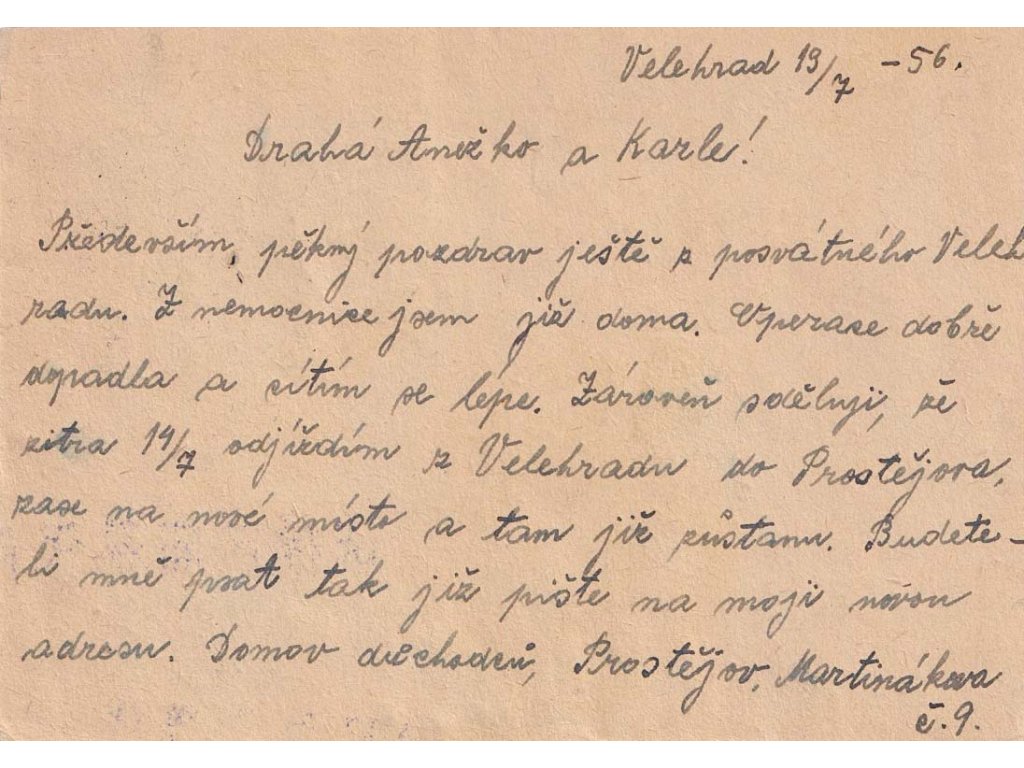 Velehrad 13/7 - 56.
Drahá Anežko a Karle!
Především, pěkný pozdrav ještě z posvátného Veleh
radu. Z nemocnice jsem již doma. Operace dobře
dopadla a cítím se lépe. Zároveň sděluji, že
zitra 14/7 odjíždím z Velehradu do Prostějova,
zase na nové místo a tam již zůstanu. Budete-
li mně psat tak již pište na moji novou
adresu. Domov důchodců, Prostějov, Martinákova
č. 9.